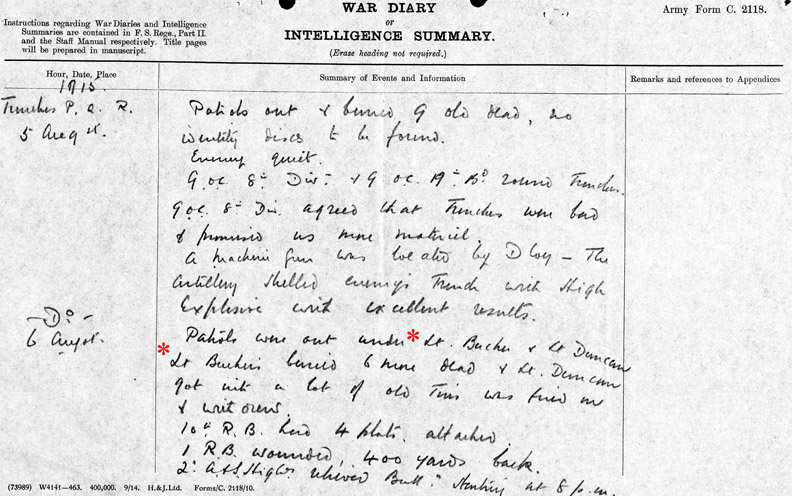 Instructions regarding War Diaries and Intelligence
Summaries are contained in F. S. Regs., Part II.
and the Staff Manual respectively. Title pages
will be prepared in manuscript.
WAR DIARY
or
INTELLIGENCE SUMMARY.
(Erase heading not required.)
Army Form C. 2118.
Hour, Date, Place
Summary of Events and Information
Remarks and references to Appendices
1915.
Trenches P. Q. R.
5 August.
Patrols out & buried 9 old dead, no
identity discs to be found.
Enemy quiet.
G.O.C. 8th Div. & G.O.C. 19th Bd round Trenches.
G.O.C. 8th Div. agreed that Trenches were bad
& promised us more material.
A machine gun was located by D Coy - The
Artillery shelled enemy's Trench with High
Explosive with excellent results.
- Do -
6 August.
Patrols were out under * Lt. Bucher & Lt Duncan
* Lt Bucher's buried 6 more dead & Lt. Duncan
got into a lot of old Tins was fired on
& withdrew.
10th R.B. had 4 plats. attached.
1 R.B. wounded, 400 yards back.
2d A&S Highrs relieved Battn. starting at 8 p.m.
(73989) W4141—463. 400,000. 9/14. H.&J.Ltd. Forms/C. 2118/10.